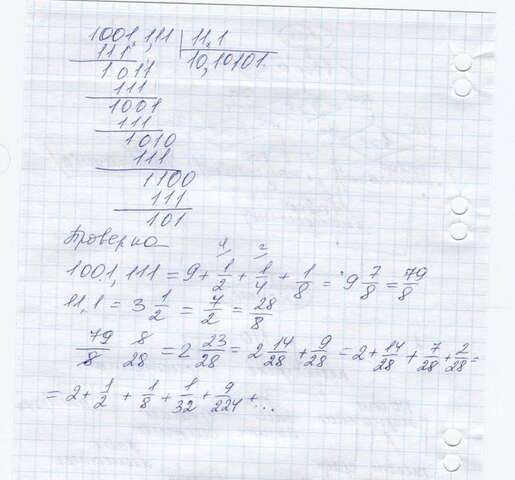 1001,111 | 11,1
111 10,10101
1011
111
1001
111
1010
111
1100
111
101
Проверка
4 2
1001,111 = 9 + 1/2 + 1/4 + 1/8 = 9 7/8 = 79/8
11,1 = 3 1/2 = 7/2 = 28/8
79/8 8/28 = 2 23/28 = 2 14/28 + 9/28 = 2 + 14/28 + 7/28 + 2/28 =
= 2 + 1/2 + 1/8 + 1/32 + 9/224 + ...